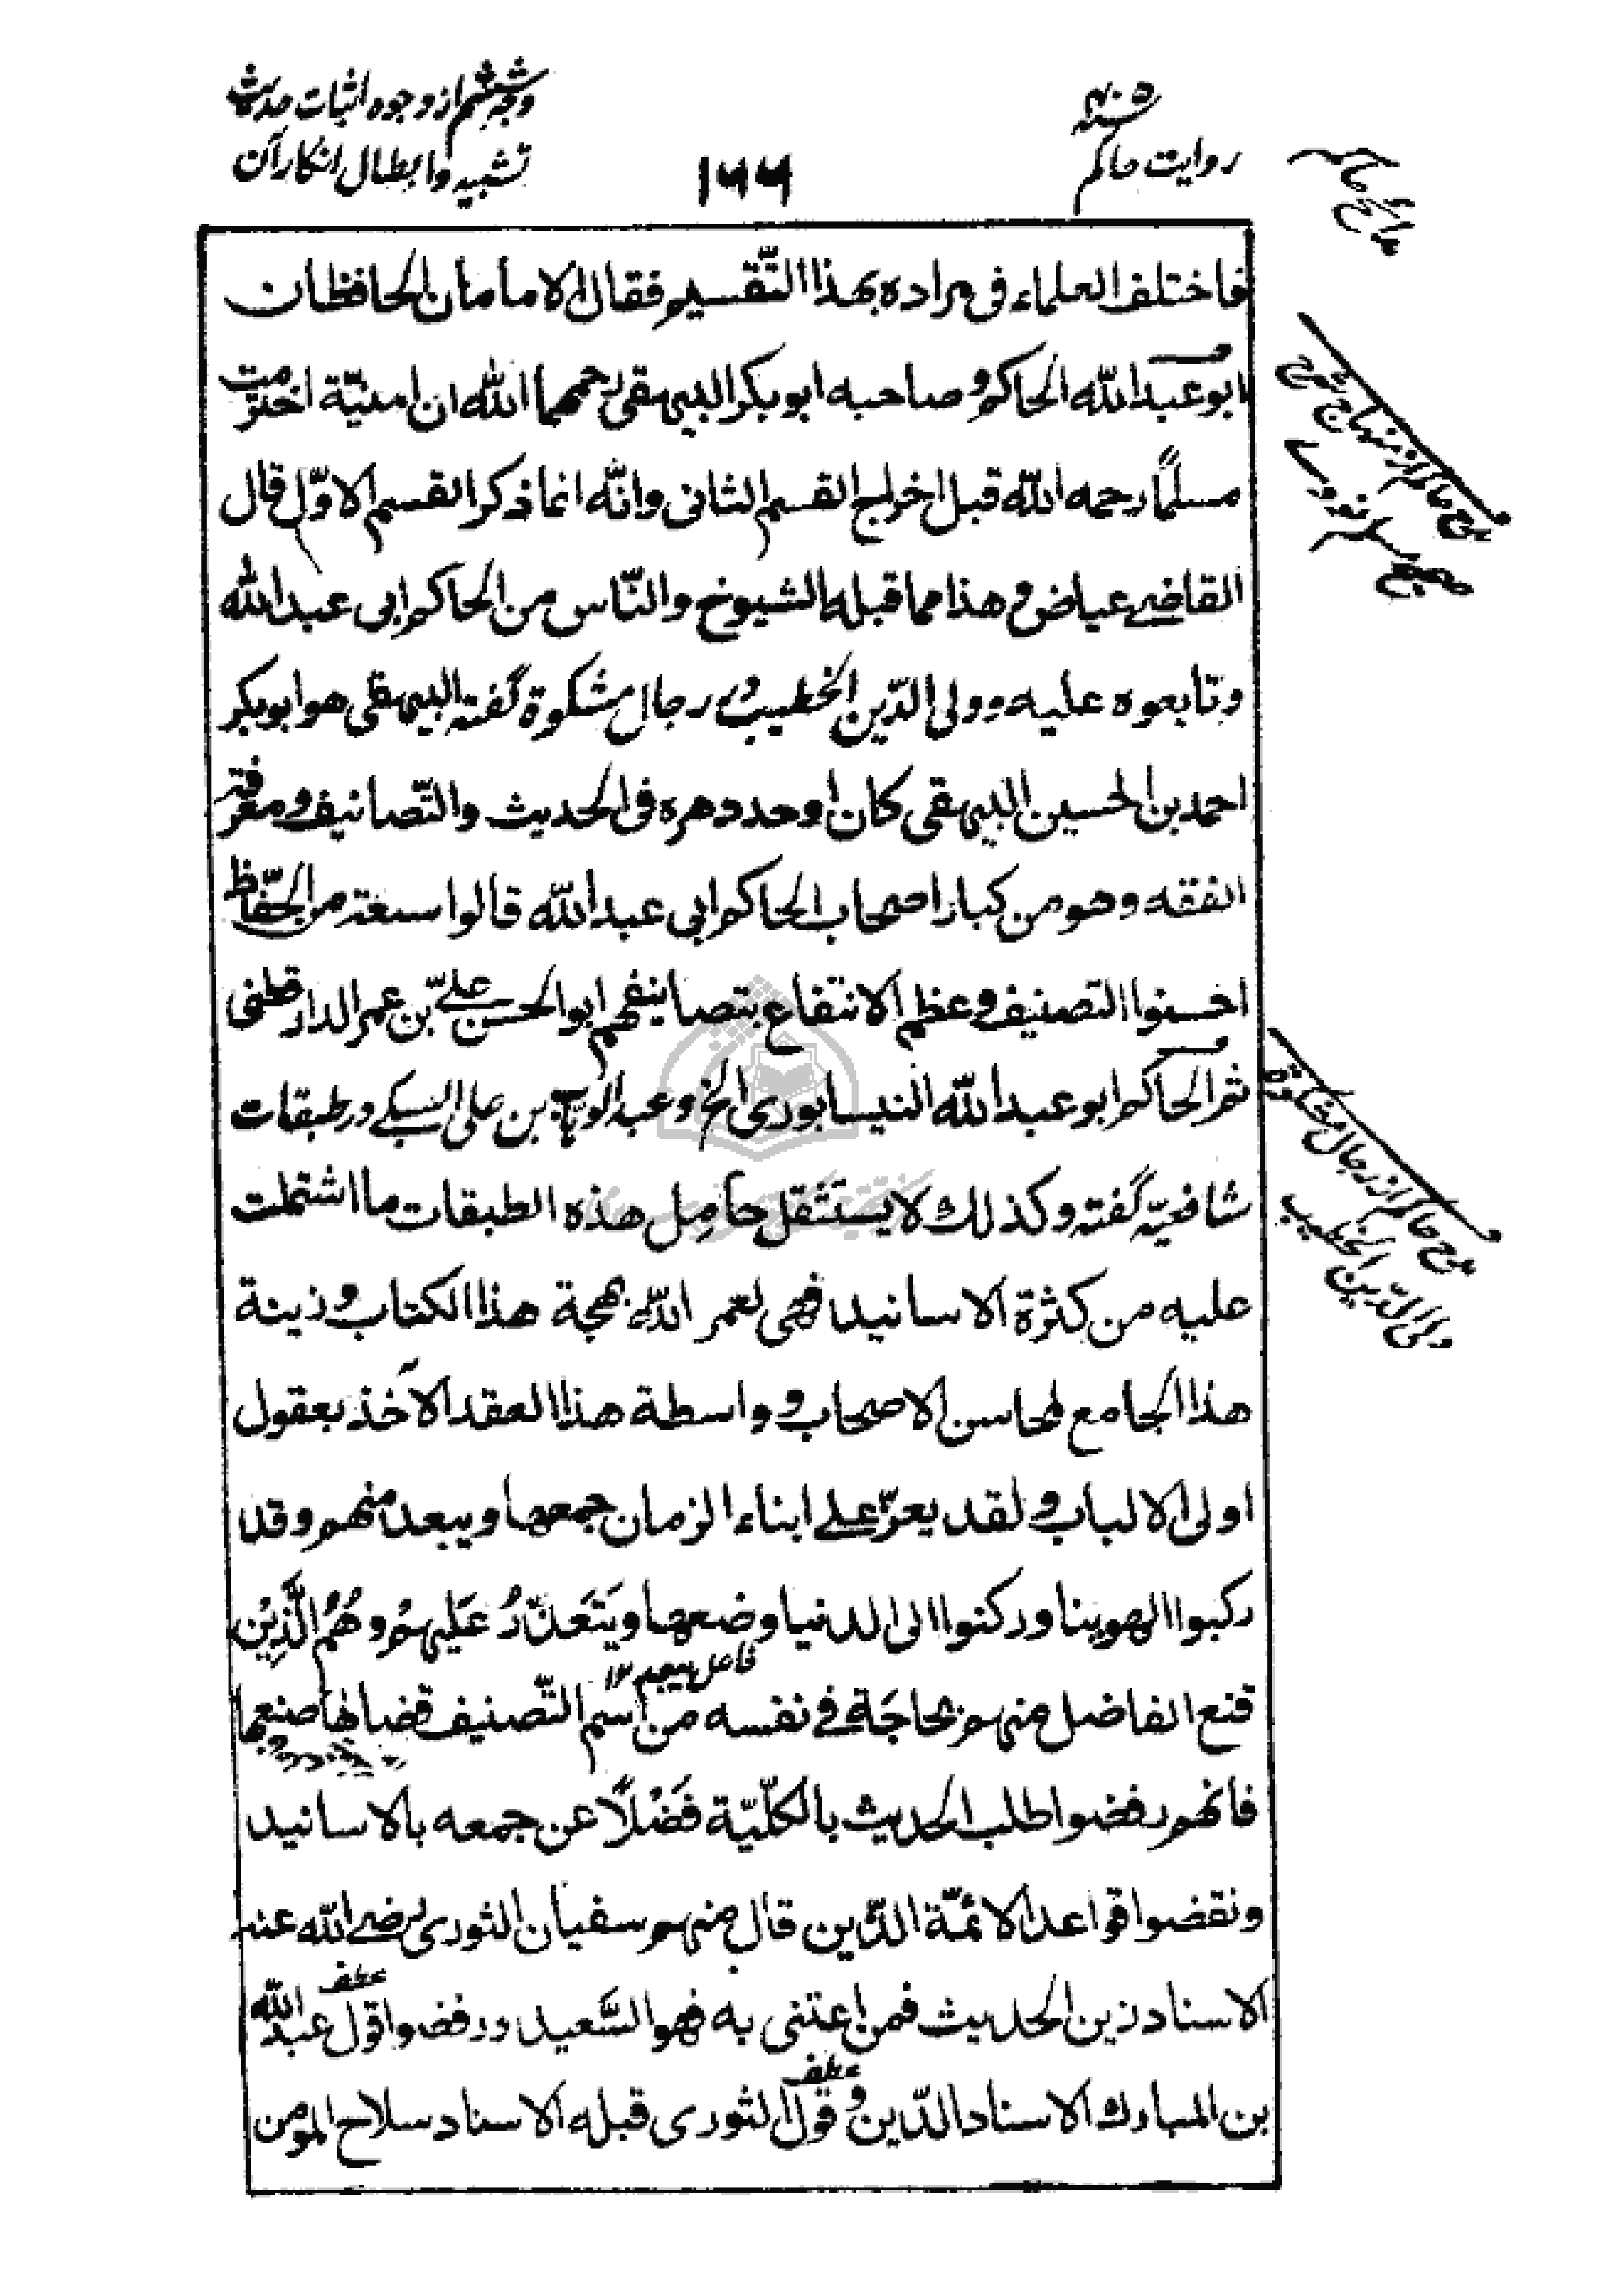 وجه ششم از وجوه اثبات حدیث
تشبیه وابطال انکار آن
۱۶۶
سنه ۴۰۵
روایت حاکم
فاختلف العلماء فی مراده بهذا التّقسیم فقال الامامان الحافظان
ابو عبد الله الحاکم وصاحبه ابو بکر البیهقی رحمهما الله ان امنیّة اخترمت
مسلمًا رحمه الله قبل اخراج القسم الثانی وانّه انما ذکر القسم الاوّل قال
القاضی عیاض وهذا مما قبله الشیوخ والنّاس من الحاکم ابی عبد الله
وتابعوه علیه وولی الدّین الخطیب در رجال مشکوة گفته البیهقی هو ابو بکر
احمد بن الحسین البیهقی کان اوحد دهره فی الحدیث والتّصانیف ومعرفة
الفقه وهو من کبار اصحاب الحاکم ابی عبد الله قالوا سبعة من الحفّاظ
احسنوا التصنیف وعظم الانتفاع بتصانیفهم ابو الحسن علیّ بن عمر الدارقطنی
ثم الحاکم ابو عبد الله النیسابوری الخ وعبد الوهاب بن علی السبکی در طبقات
شافعیّه گفته وکذلك لا یستَثقل حامِل هذه الطبقات ما اشتملت
علیه من کثرة الاسانید فهی لعمر الله بهجة هذا الکتاب وزینة
هذا الجامع لمحاسن الاصحاب وواسطة هذا العقد الآخذ بعقول
اولی الالباب ولقد یعزّ علی ابناء الزمان جمعها ویبعد منهم وقد
رکبوا الهوینا ورکنوا الی الدنیا وضعها ویَتَعَذّرُ عَلَیهِمْ وهُمُ الَّذِیْن
فاعل یبعد ۱۲
قنع الفاضل منهم بحاجَةٍ فی نفسه من اسم التّصنیف قضاها صنیعها
فانهم رفضوا طلب الحدیث بالکلّیّة فَضْلًا عن جمعه بالاسانید
ونقضوا قواعد الائمّة الذّین قال منهم سفیان الثوری رضی الله عنه
عطف
الاسناد زین الحدیث فمن اعتنی به فهو السَّعید ورفضوا قول عبد الله
عطف
بن المبارك الاسناد الدّین وقول الثوری قبله الاسناد سلاح المومن
مدح حاکم از منهاج شرح
صحیح مسلم نووی
مدح حاکم از رجال مشکوة
ولی الدّین الخطیب